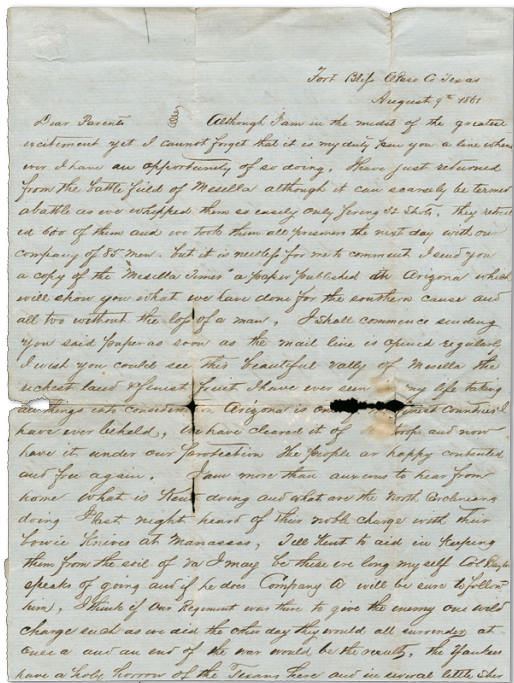 Fort Bliss El Paso C Texas
August 9th 1861
Dear Parents Although I am in the midst of the greatest
excitement yet I cannot forget that it is my duty pen you a line when
ever I have an opportunity of so doing, I have just returned
from the battle field of Mesilla although it can scarsely be termed
a battle as we whipped them so easily only firing 32 shots, they retreat
ed 600 of them and we took them all prisoners the next day with our
company of 85 men. but it is needless for me to comment I send you
a copy of the Mesilla Times" a paper published in Arizona which
will show you what we have done for the southern cause and
all two without the loss of a man, I shall commence sending
you said paper as soon as the mail line is opened regularly
I wish you could see this beautiful vally of Mesilla the
richest land & finest fruit I have ever seen my life taking
all things into consideration Arizona is one finest countries I
have ever beheld, We have cleared it of troops and now
have it under our protection the people ar happy contented
and free again. I am more than auxious to hear from
home What is Kent doing and what are the North Carolinians
doing I last night heard of their noble charge with their
bowie Knives at Manassas, Tell Kent to aid in keeping
them from the soil of Va I may be there ere long my self Col
speaks of going and if he does Company A will be sure to follow
him, I think if our Regiment was there to give the enemy one wild
charge such as we did the other day they would all surrender at
once and an end of the war would be the result, the Yankees
have a holy horrow of the Texans here and in several little